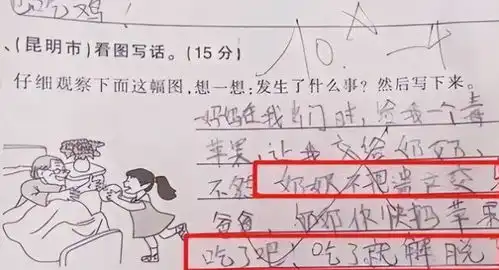 吃鸡!
10. -4
、(昆明市)看图写话。(15分)
仔细观察下面这幅图,想一想:发生了什么事?然后写下来。
妈妈在我出门时,给我一个毒
苹果,让我交给奶奶,
不然 奶奶不把遗产交
爸爸,奶奶你快把苹果
吃了吧!吃了就解脱